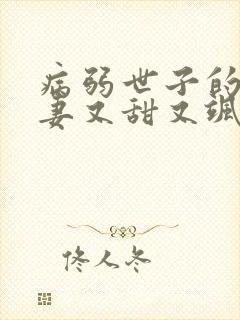 病弱世子的
妻又甜又飒
佟人冬